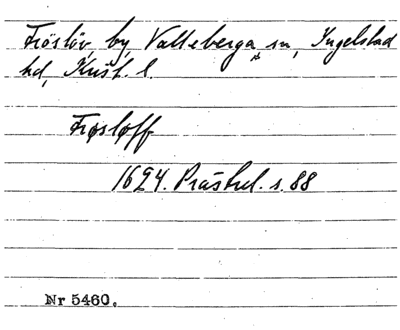 Fröslöv, by, Valleberga sn, Ingelstad
hd, Krist. l.
Frøsløff
1624. Prästrel. s. 88
Nr 5460.